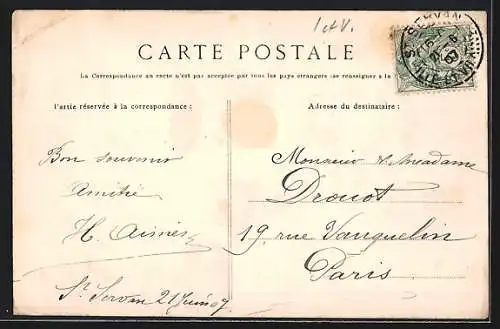 1 et V.
CARTE POSTALE
La Correspondance au recto n'est pas acceptée par tous les pays étrangers (se renseigner à la
Partie réservée à la correspondance :
Adresse du destinataire :
Bon souvenir
Amitié
H.
St Servan 21 Juin 07
Monsieur et Meadame
Drouot
19 rue Vauquelin
Paris
SERVAN
ILLE-ET-VILAINE